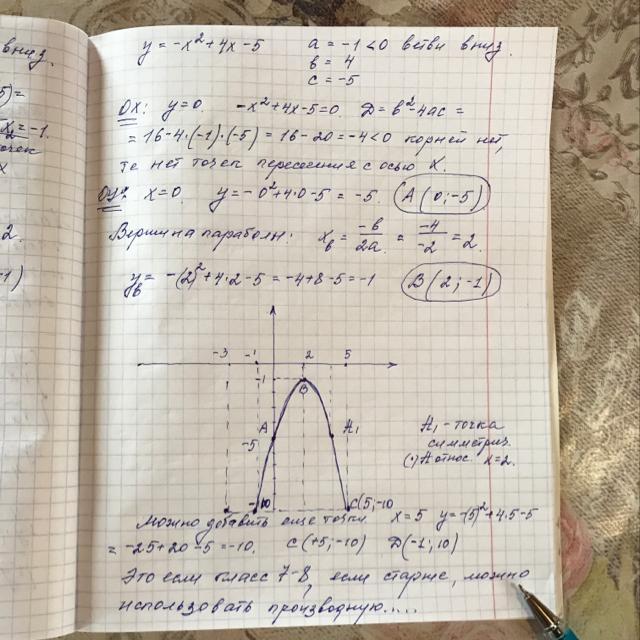 вниз.
5)=
x₂=-1.
точек
x
2.
-1)
y = -x²+4x-5   a = -1<0 ветви вниз.
в = 4
c = -5
OX: y=0   -x²+4x-5=0.   D=в²-4ac =
= 16-4·(-1)·(-5) = 16-20 = -4<0 корней нет,
те нет точек пересечения с осью X.
OY: x=0   y=-0²+4·0-5 = -5.   A(0;-5)
Вершина параболы: xв = -в/2a = -4/-2 = 2.
yв = -(2)²+4·2-5 = -4+8-5=-1   B(2;-1)
-3   -1   2   5
-1
B
A   A₁
-5
-10   C(5;-10
A₁ - точка
симметрич.
(·)A относ. x=2.
Можно добавить еще точки   x=5   y=-(5)²+4·5-5
= -25+20-5=-10.   C(+5;-10)   D(-1;10)
Это если класс 7-8, если старше, можно
использовать производную.....